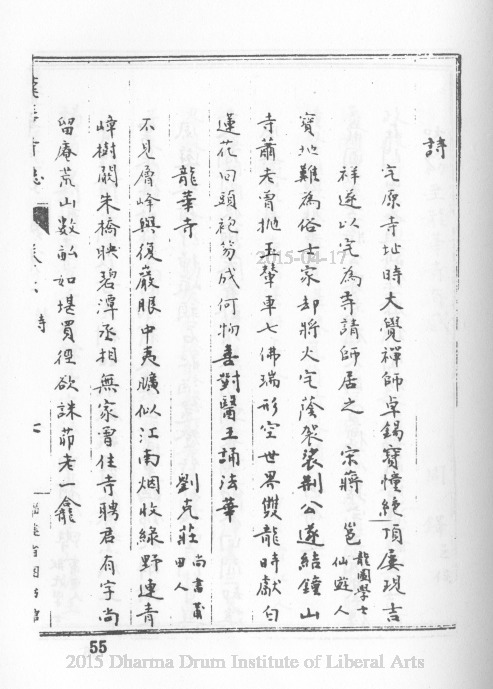 詩
宅原寺址時大覺禪師卓錫寶幢絕頂屢現吉
祥遂以宅為寺請師居之 宋蔣邕龍圖學士仙遊人
寶地難為俗士家却將火宅蔭袈裟荆公遂結鐘山
寺蕭老曾拋玉輦車七佛瑞形空世界雙龍時獻白
蓮花回頭袍笏成何物喜對醫王誦法華
龍華寺 劉克莊尚書莆田人
不見層峰與復巖眼中夷曠似江南烟收綠野連青
嶂樹闕朱橋映碧潭丞相無家曾住寺聘君有字尚
留庵荒山數畝如堪買徑欲誅茆老一龕
志 卷 詩
55
2015-04-17
2015 Dharma Drum Institute of Liberal Arts